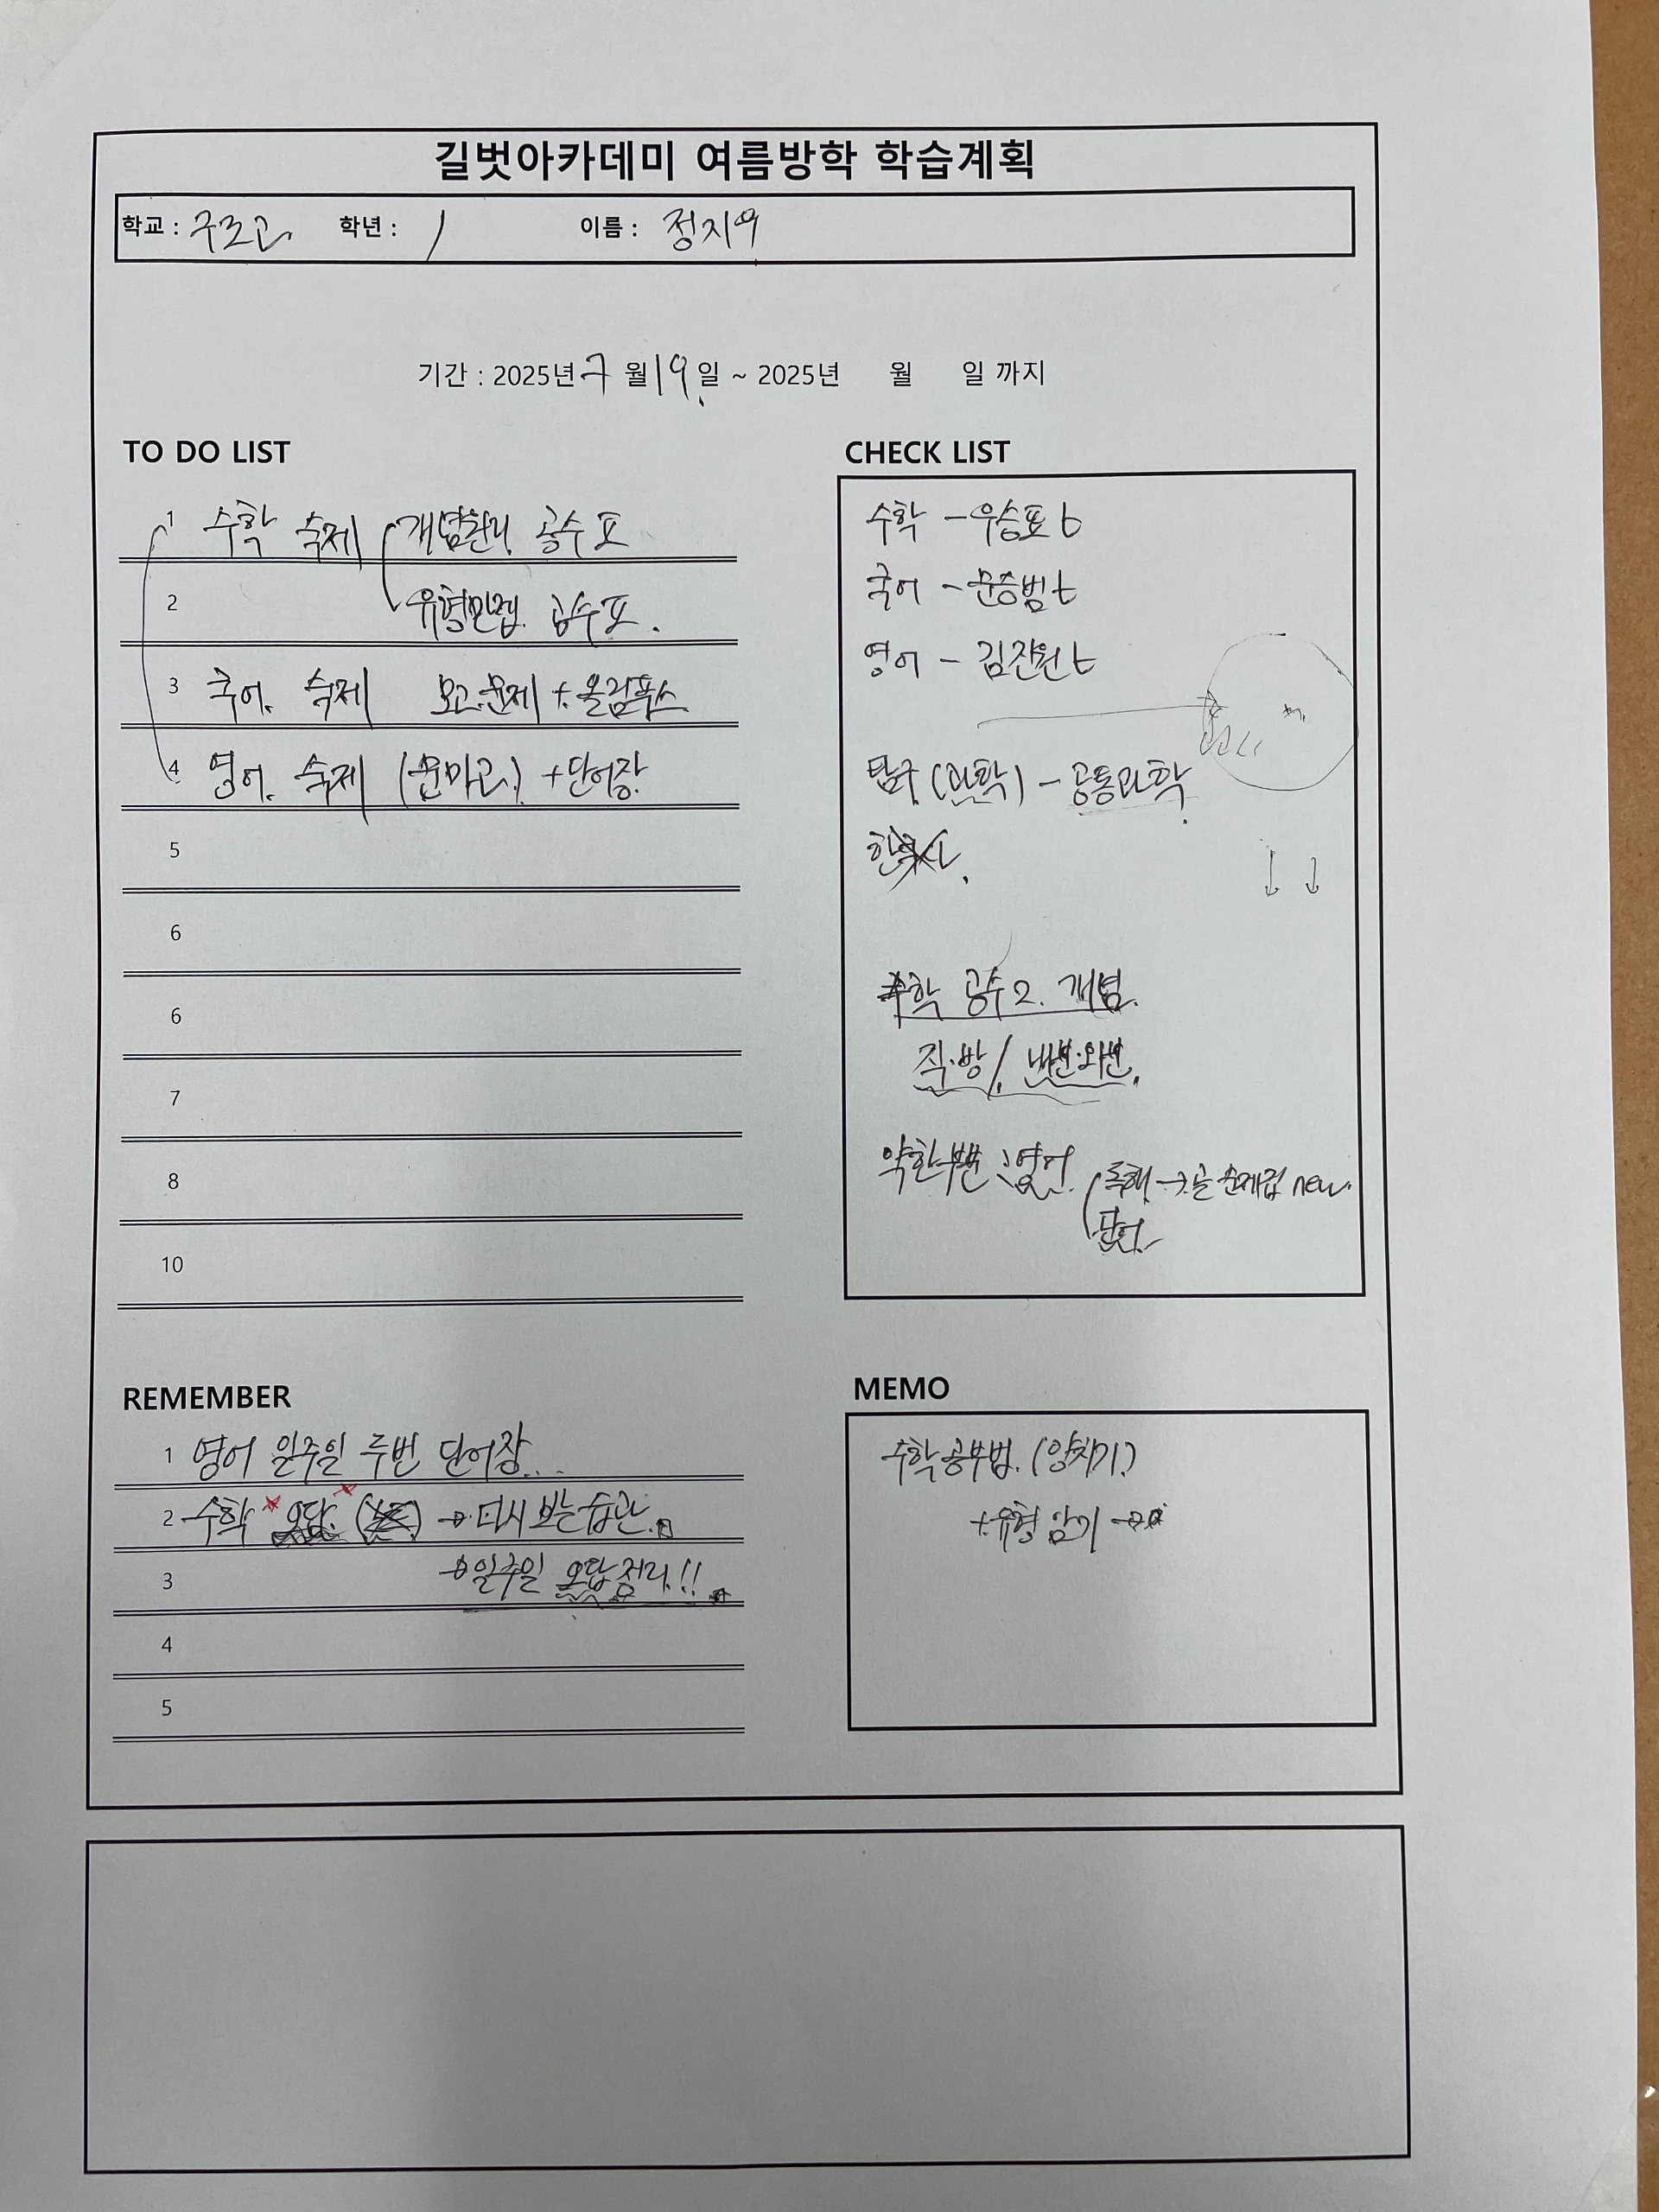 길벗아카데미 여름방학 학습계획
학교 : 구로고 학년 : 1 이름 : 정지우
기간 : 2025년 7월 19일 ~ 2025년 월 일 까지
TO DO LIST
1 수학 숙제 개념원리 공수 표
2 공수 표.
3 국어. 숙제 모고.문제 + 올림푸스
4 영어. 숙제 (운마고) + 단어장.
5
6
6
7
8
10
CHECK LIST
수학 - 우승표 t
국어 - 문승범 t
영어 - 김진원 t
탐구 (과학) - 공통과학.
한국사.
수학 공수2. 개념.
직·방 / 내분·외분.
약한부분 : 영어. 독해 → new.
단어.
REMEMBER
1 영어 일주일 두번 단어장...
2 수학 오답. → 다시 보는 습관.
3 → 일주일 오답 정리!!
4
5
MEMO
수학 공부법. (양치기.)
+ 유형 암기 →